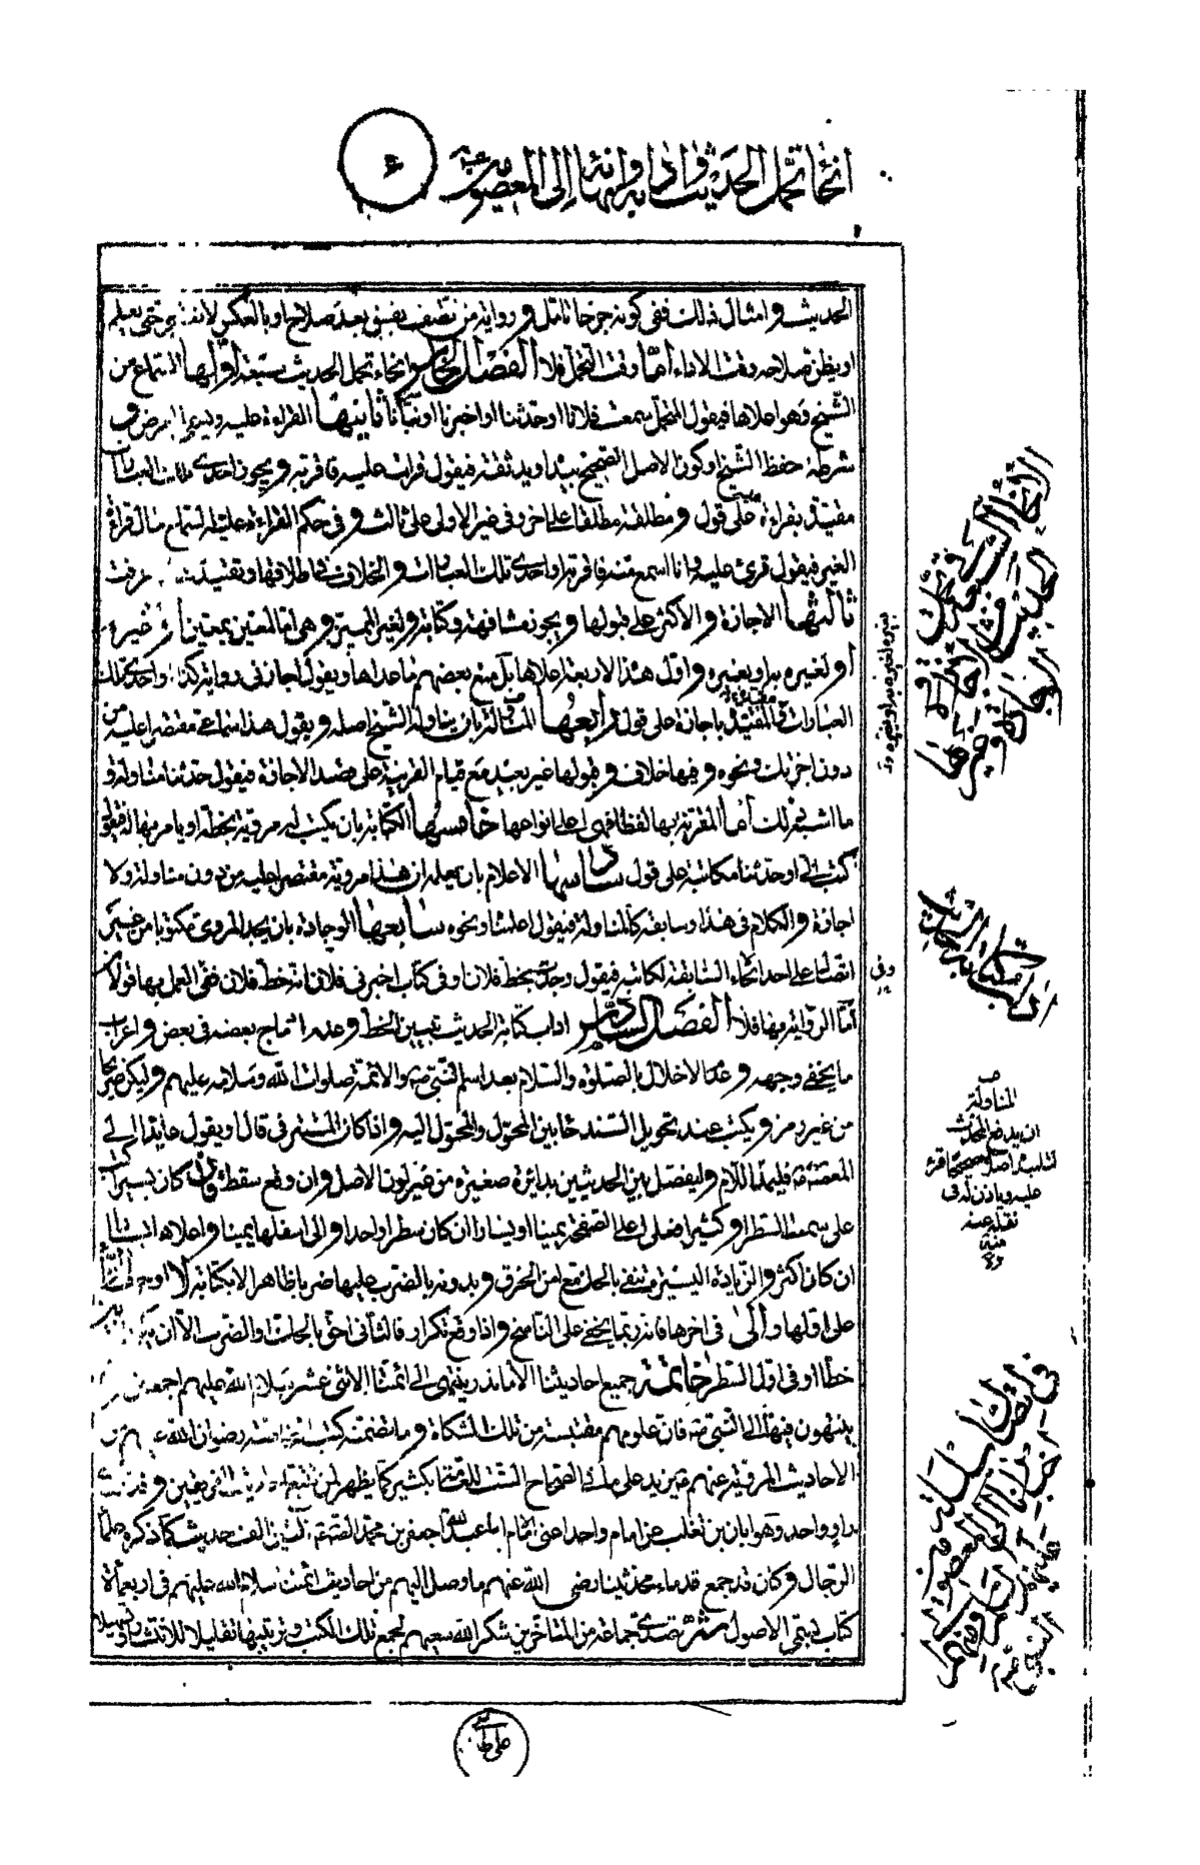 انحاء تحمل الحديث وادابه وانهائه الى المعصومين
٤
الحديث وامثال ذلك ففى كونه جرحا تامل ورواية من تصف بفسق بعد صلاح او بالعكس لا تعتبر حتى يعلم
او يظن صلاحه وقت الاداء اما وقت التحمل فلا الفصل الخامس انحاء تحمل الحديث سبعة اولها السماع من
الشيخ وهو اعلاها فيقول المتحمل سمعت فلانا او حدثنا او اخبرنا او نبأنا ثانيها القراءة عليه وتسمى العرض و
شرطه حفظ الشيخ او كون الاصل الصحيح بيده او يد ثقة فيقول قرات عليه فاقر به ويجوز احدى تلك العبارات
مقيدة بقراءة على قول ومطلقة مطلقا على اخر وفى غير الاولى على ثالث وفى حكم القراءة عليه السماع حال قراءة
الغير فيقول قرئ عليه وانا اسمع منه فاقر به او احدى تلك العبارات والخلاف فى اطلاقها وتقييدها كما عرفت
ثالثها الاجازة والاكثر على قبولها ويجوز مشافهة وكتابة ولغير المميز وهى اما لمعين بمعين او غيره
او لغيره به او بغيره واول هذه الاربعة اعلاها بل منع بعضهم ما عداها ويقول اجازنى رواية كذا او احدى تلك
العبارات المقيدة باجازة على قول رابعها المناولة بان يناوله الشيخ اصله ويقول هذا سماعى مقتصرا عليه من
دون اجزتك ونحوه وفيها خلاف وقبولها غير بعيد مع قيام القرينة على قصد الاجازة فيقول حدثنا مناولة و
ما اشبه ذلك اما المقترنة بها لفظا فهى اعلى انواعها خامسها الكتابة بان يكتب له مرويه بخطه او يامر بها له فيقول
كتب الى او حدثنا مكاتبة على قول سادسها الاعلام بان يعلمه ان هذا مرويه مقتصرا عليه من دون مناولة ولا
اجازة والكلام فى هذا وسابقه كالمناولة فيقول اعلمنا ونحوه سابعها الوجادة بان يجد المروى مكتوبا من غير
اتصال على احد الانحاء السابقة لكاتبه فيقول وجدت بخط فلان او فى كتاب اخبرنى فلان انه خط فلان ففى العمل بها قولان
اما الرواية بها فلا الفصل السادس اداب كتابة الحديث تبيين الخط وعدم ادماج بعضه فى بعض واعراب
ما يخفى وجهه وعدم الاخلال بالصلوة والسلام بعد اسم النبى ص والائمة صلوات الله وسلامه عليهم وليكن صريحا
من غير رمز ويكتب عند تحويل السند حا بين المحول والمحول اليه واذا كان المستتر فى قال او يقول عايدا الى
المعصوم فليمد اللام وليفصل بين الحديثين بدائرة صغيرة من غير لون الاصل وان وقع سقط فان كان يسيرا كتب
على سمت السطر او كثيرا فعلى اعلى الصفحة يمينا او يسارا ان كان سطرا واحدا والى اسفلها يمينا واعلاها يسارا
ان كان اكثر والزيادة اليسيرة تنفى بالحك مع امن الخرق وبدونه بالضرب عليها ضربا ظاهرا لا بكتابة لا او حرف الزاء
على اولها والى فى اخرها فانه ربما يخفى على الناسخ واذا وقع تكرار فالثانى احق بالحك او الضرب الا ان يكون ابين
خطا او فى اول السطر خاتمة جميع احاديثنا الا ما ندر ينتهى الى ائمتنا الاثنى عشر سلام الله عليهم اجمعين
ينتهون فيها الى النبى ص فان علومهم مقتبسة من تلك المشكاة وما تضمنته كتب الخاصة رضوان الله عليهم من
الاحاديث المروية عنهم ع يزيد على ما فى الصحاح الست للعامة بكثير كما يظهر لمن تتبع احاديث الفريقين وقد روى
راو واحد وهو ابان بن تغلب عن امام واحد اعنى الامام ابا عبد الله جعفر بن محمد الصادق ع ثلثين الف حديث كما ذكره علماء
الرجال وكان قد جمع قدماء محدثينا رضى الله عنهم ما وصل اليهم من احاديث ائمتنا سلام الله عليهم فى اربعمائة
كتاب تسمى الاصول ثم تصدى جماعة من المتاخرين شكر الله سعيهم لجمع تلك الكتب وترتيبها تقليلا للانتشار وتسهيلا
المناولة
ان يدفع المحدث
لطالب اصل
عليه وياذن له فى
نقله عنه
منه